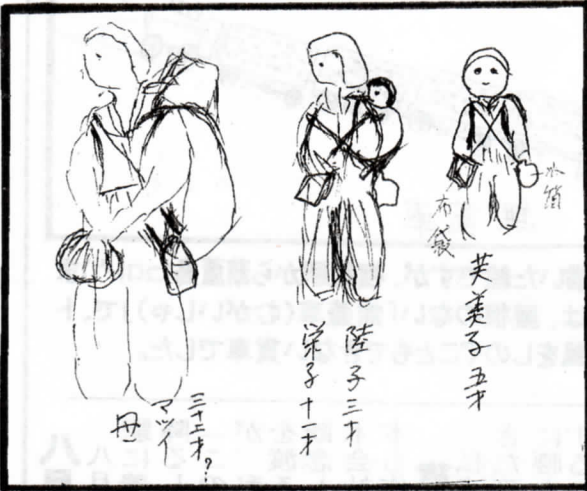 水筒
布袋
芙美子 五才
陸子 三才
栄子 十一才
三十二才?
マツイ
母